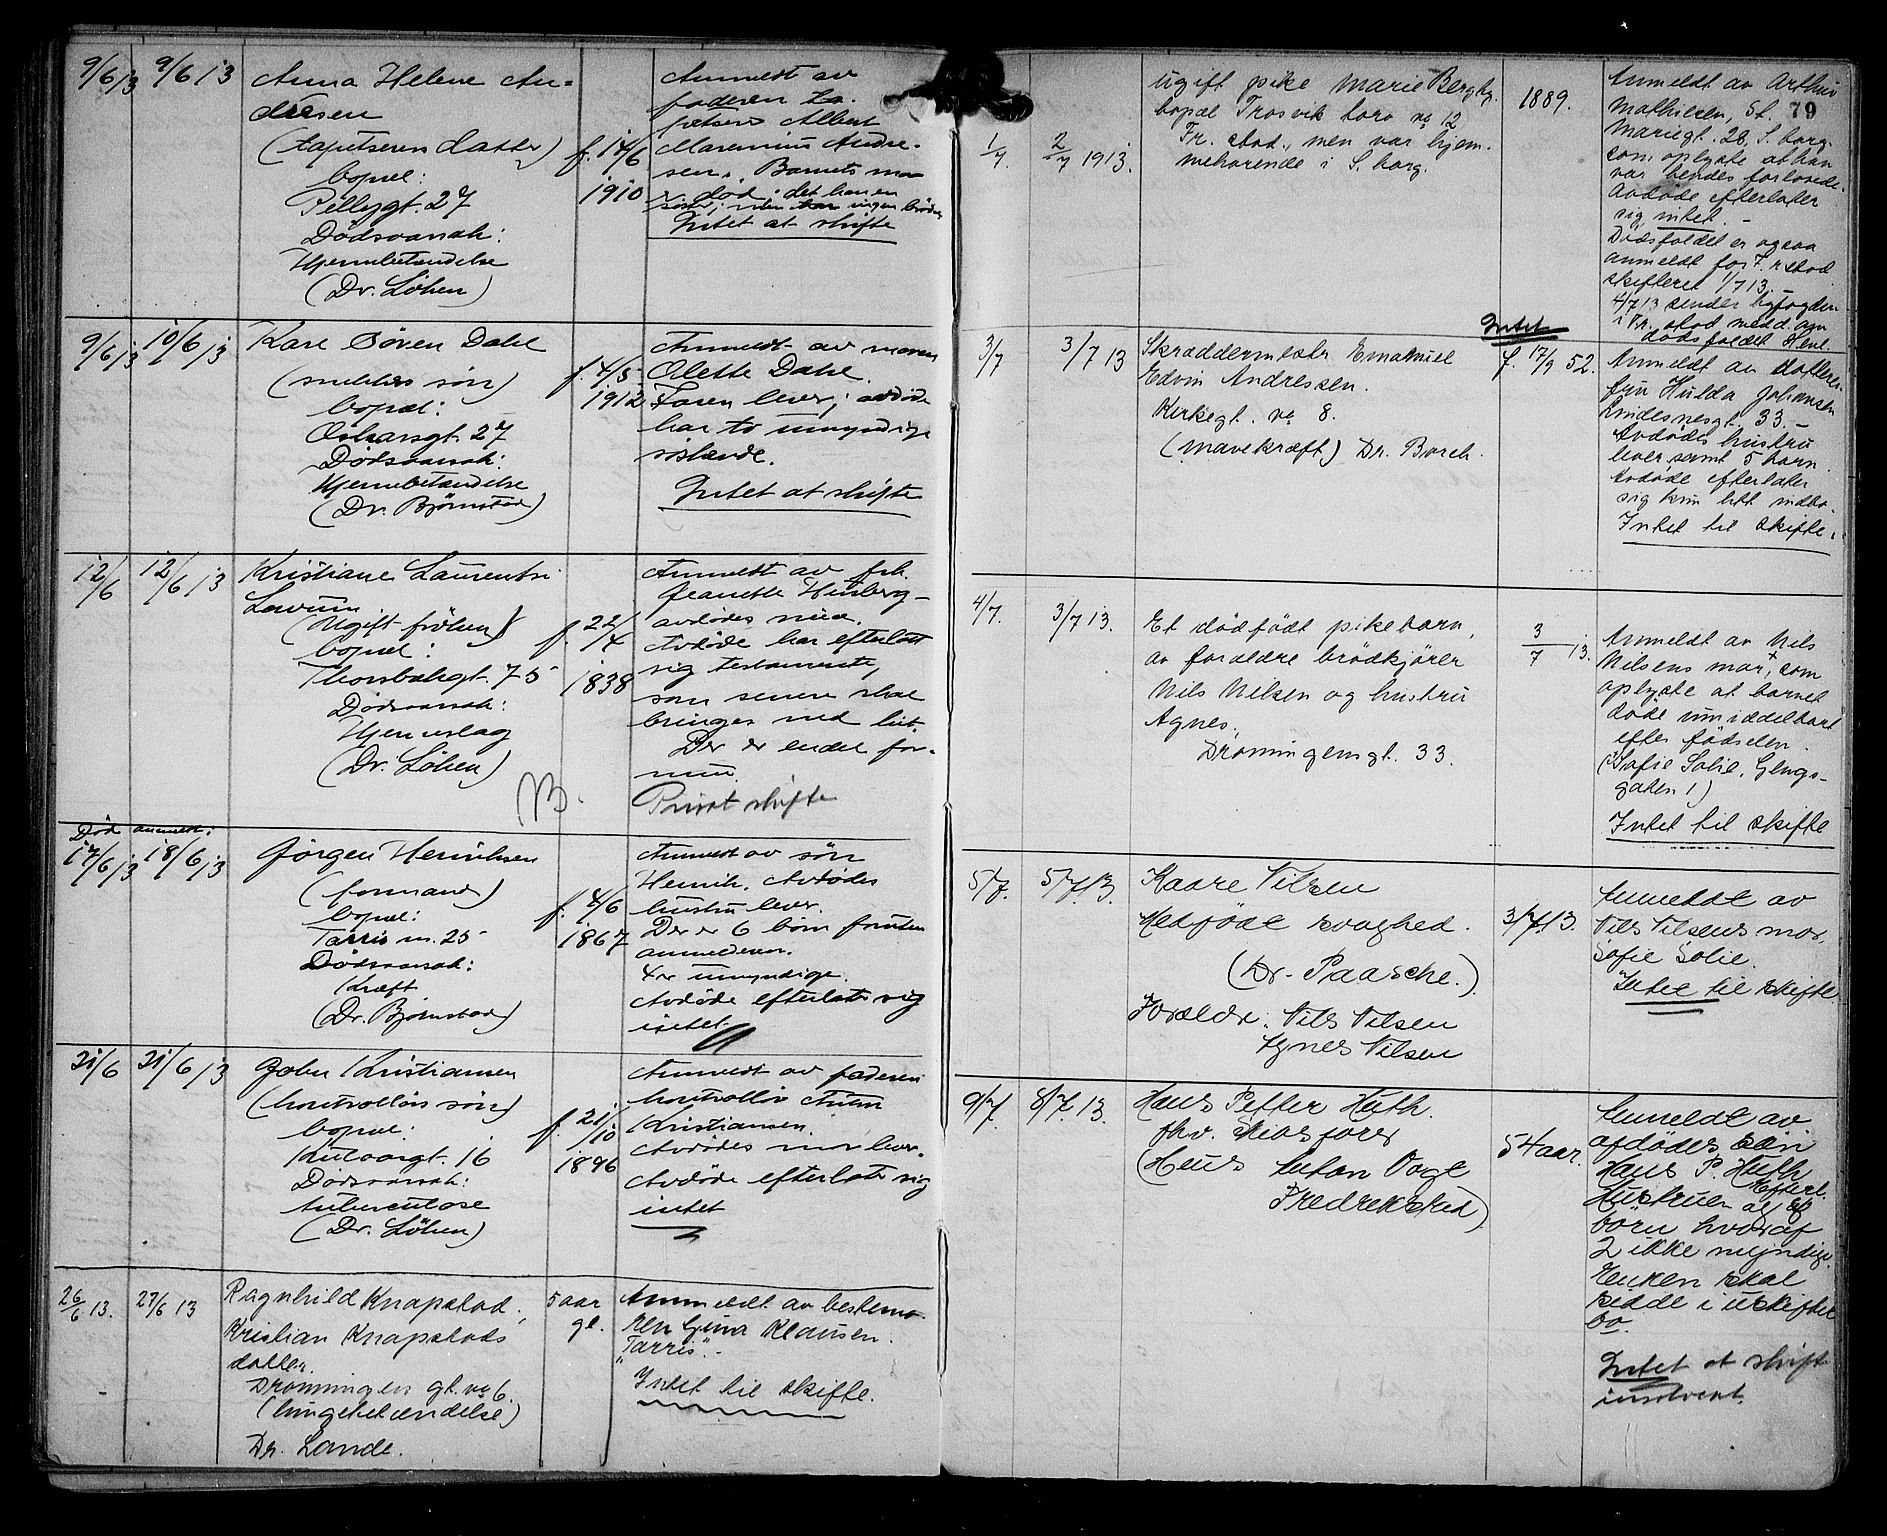 9/6 13 9/6 13 Anna Helene An-
dresen
(tapetserers datter)
bopæl:
Pellygt. 27
Dødsaarsak:
Hjernebetændelse
(Dr. Löken)
f. 14/6
1910
Anmeldt av
faderen ta-
petserer Albert
Marenius Andre-
sen. Barnets mor
er død; det har en
søster, men ingen brødre
Intet at skifte
9/6 13 10/6 13 Kare Søren Dahl
(snekkers søn)
bopæl:
Oskarsgt. 27
Dødsaarsak:
Hjernebetændelse
(Dr. Bjørnstad)
f. 4/5
1912
Anmeldt av moren
Olette Dahl.
Faren lever; avdøde
har to umyndige
søskende.
Intet at skifte
12/6 12/6 13 Kristiane Laurentse
(Ugift frøken)
bopæl:
Thorsbakgt. 75
Dødsaarsak:
Hjerneslag
(Dr. Löken)
f. 22/4
1838
Anmeldt av frk.
Jeanette Hesberg
avdødes niece.
Avdøde har efterlatt
sig testamente,
som senere skal
bringes ned hit.
Der er endel for-
mue.
Privat skifte
B.
Død anmeldt:
17/6 13 18/6 13 Jørgen Henriksen
(formand)
bopæl:
Tarris n. 25
Dødsaarsak:
Kræft
(Dr. Bjørnstad)
f. 4/6
1867
Anmeldt av søn
Henrik. Avdødes
hustru lever.
Der er 6 børn foruten
anmelderen.
4 er umyndige.
Avdøde efterlater sig
intet.
21/6 21/6 13 John Kristiansen
(kontrollørs søn)
bopæl:
Dødsaarsak:
tuberculose
(Dr. Löken)
f. 21/10
1896
Anmeldt av faderen
kontrollør Anton
Kristiansen.
Avdødes mor lever.
Avdøde efterlater sig
intet
26/6 13. 27/6 13 Ragnhild Knapstad,
Kristian Knapstads
datter.
Dronningens gt. No 6.
(lungebetændelse)
Dr. Lande.
5 aar
gl.
Anmeldt av bestemo-
ren Gina Klausen.
"Tarris".
Intet til skifte.
79
1/7 2/7 1913. ugift pike Marie Bergby.
bopæl Trosvik torv No 12
Fr. stad, men var hjem-
mehørende i S. borg.
1889.
Anmeldt av Arthur
Mathisen, St.
Mariegt. 28, S. borg.
som oplyste at han
var hendes forlovede.
Avdøde efterlater
sig intet. -
Dødsfaldet er ogsaa
anmeldt for Fr.stad
skifteret 1/7 13. -
4/7 13 sendes byfogden
i Fr. stad medd. om
dødsfaldet.
Intet
3/7 3/7 13 Skræddermestr. Emanuel
Edvin Andressen.
Kirkegt. No 8.
(mavekræft) Dr. Borch.
f. 17/9 52.
Anmeldt av datteren
fru Hulda Johansen
Lindesnesgt. 33. -
Avdødes hustru
lever samt 5 barn.
Avdøde efterlater
sig kun litt indbo.
Intet til skifte.
4/7. 3/7 13. Et dødfødt pikebarn,
av foreldre brødkjører
Nils Nilsen og hustru
Agnes.
Dronningensgt. 33.
3/7 13.
Anmeldt av Nils
Nilsens mor x, som
oplyste at barnet
døde umiddelbart
efter fødselen.
(x Sofie Solie, Glengs-
gaten 1)
Intet til skifte
5/7. 5/7 13. Kaare Nilsen
Medfödt svaghed.
(Dr. Paasche.)
Forældre: Nils Nilsen
Agnes Nilsen
3/7 13.
Anmeldt av
Nils Nilsens mor,
Sofie Solie.
Intet til skifte
9/7. 8/7 13. Hans Petter Huth.
fhv. skibsfører
Anton Vogt
Fredrikstad)
54 aar.
Anmeldt av
afdødes søn
Hans P. Huth
Efterl.
Hustruen og
børn hvoraf
2 ikke myndige.
Enken skal
sidde i uskiftet
bo.
Intet at skifte
insolvent.